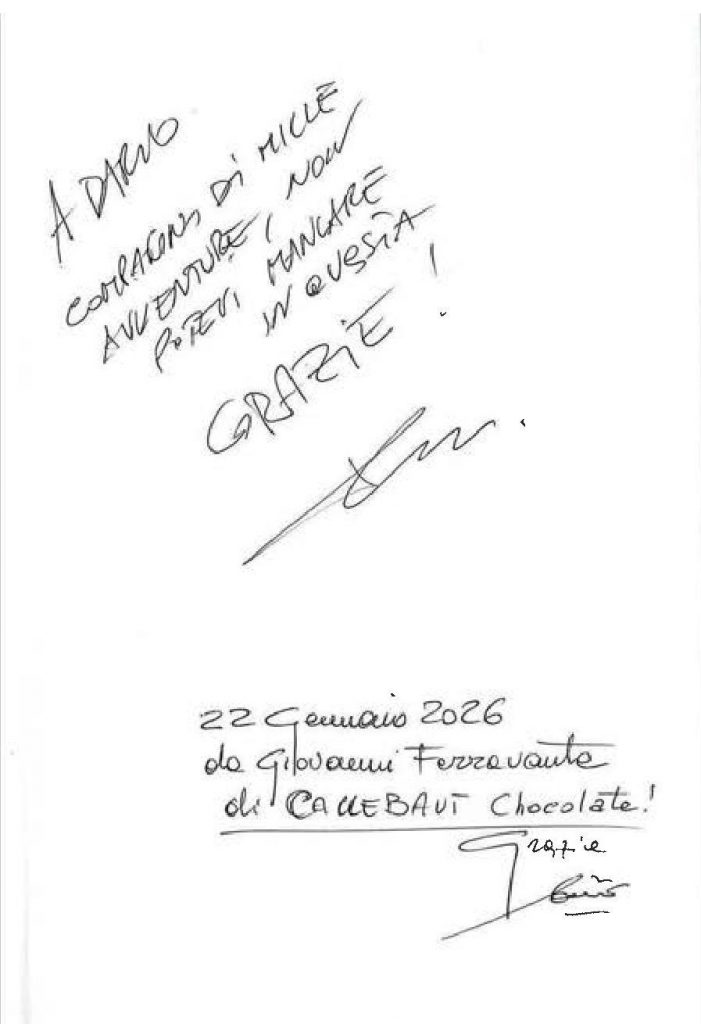 A DARIO
COMPAGNO DI MILLE
AVVENTURE, NON
POTEVI MANCARE
IN QUESTA
GRAZIE !
22 Gennaio 2026
da Giovanni Ferravante
di CALLEBAUT Chocolate!
Grazie